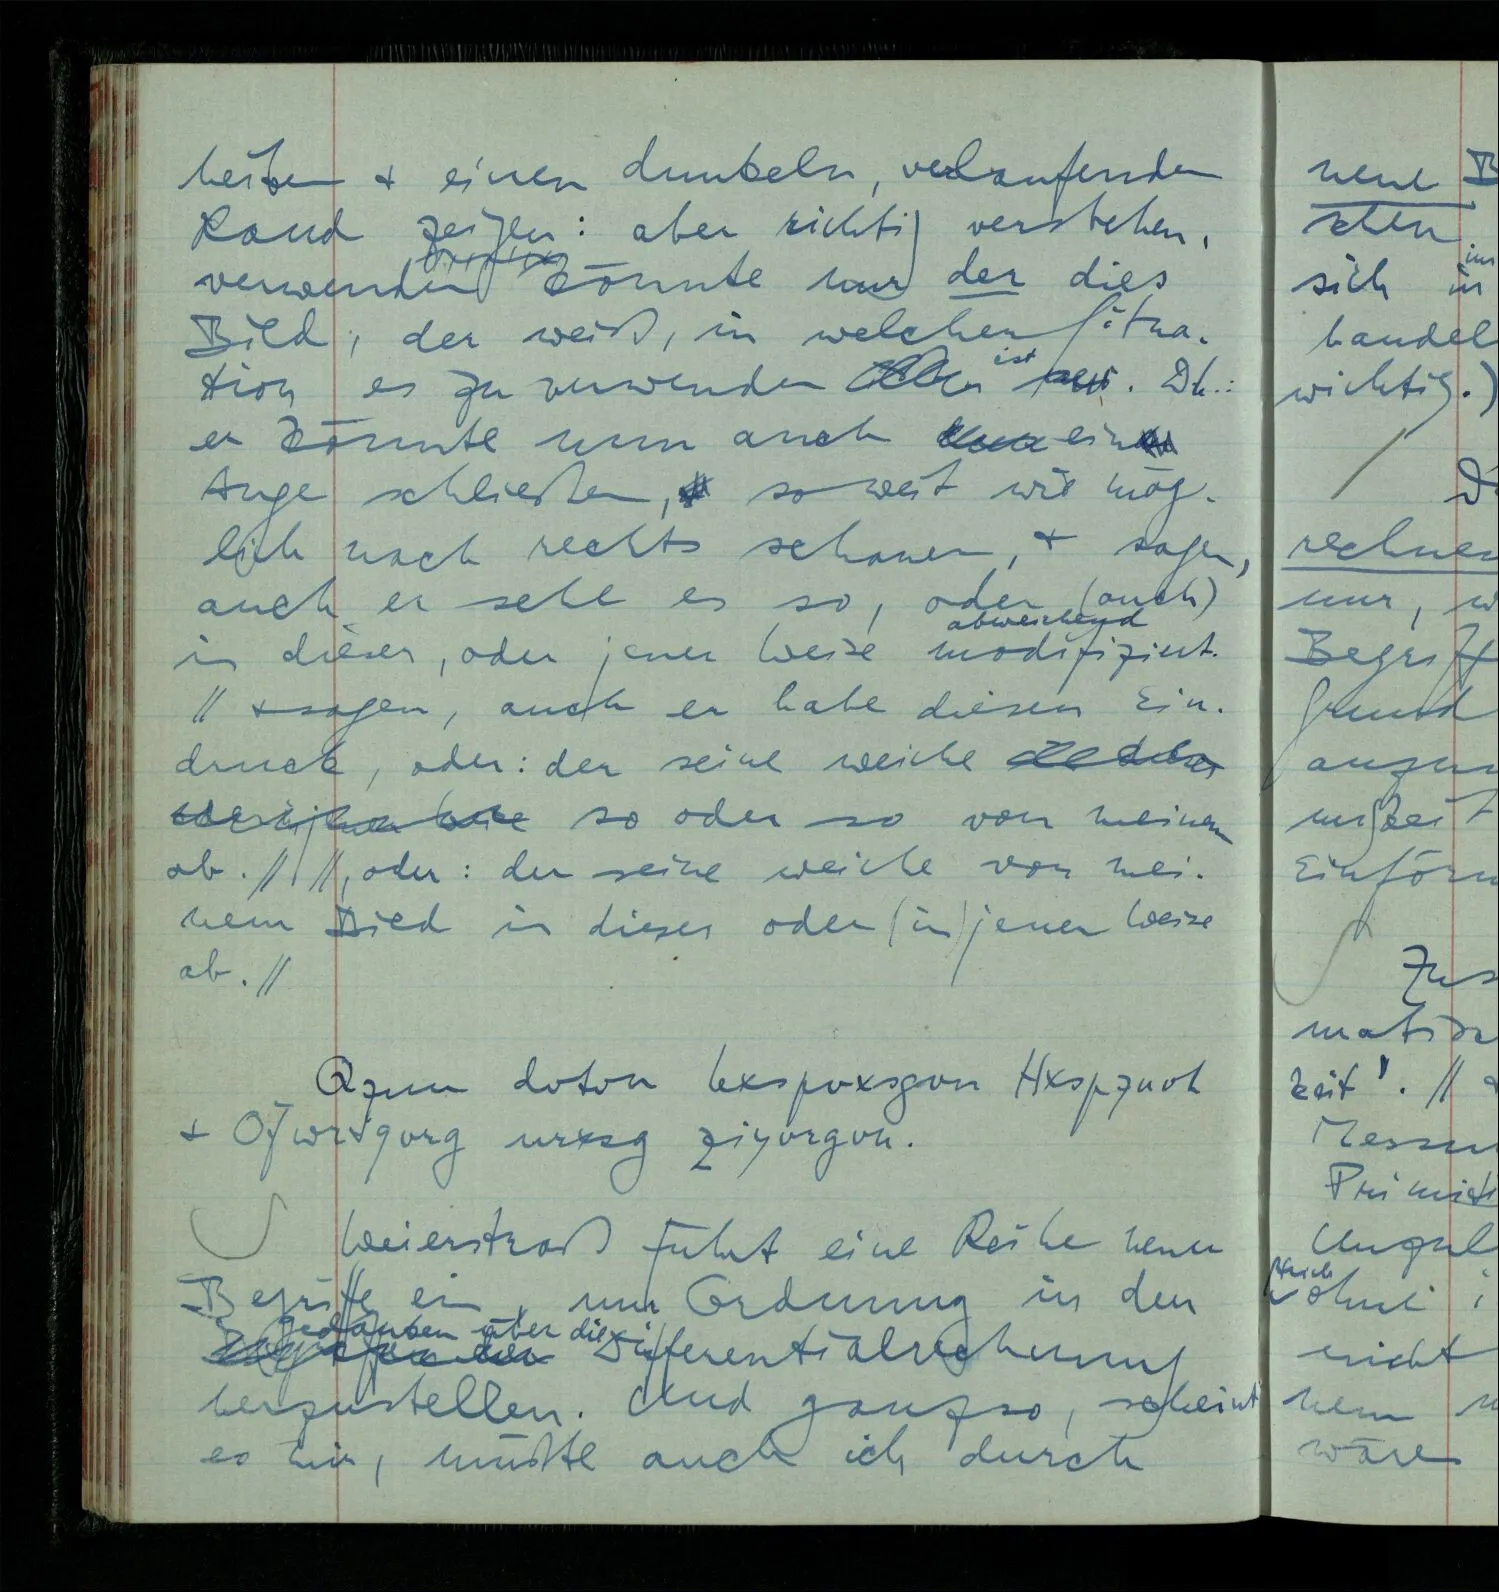 heiten & einen dunkeln, verlaufenden
Rand zeigen: aber richtig verstehen,
verwenden könnte nur der dies
Bild, der weiß, in welchen Situa-
tion es zu verwenden ist. Dh.:
er könnte nun auch ein
Auge schließen, soweit wie mög-
lich nach rechts schauen, & sagen,
auch er sehe es so, oder (auch)
abweichend
in dieser, oder jener Weise modifiziert.
// & sagen, auch er habe diesen Ein-
druck, oder: der seine weiche
so oder so von meinem
ab. // //, oder: der seine weiche von mei-
nem Bild in dieser oder (in) jener Weise
ab. //
Qzun doton Hxspznoh
& urxsg ziyorgon.
Weierstraß führt eine Reihe neuer
Begriffe ein, um Ordnung in den
Gedanken über die Differentialrechnung
herzustellen. Und ganz so, scheint
es mir, müßte auch ich durch
neue B
schen
sich in
handel
wichtig.)
rechnen
nur, w
Begriff
Grund
anzun
Einförm
Zus
matisc
keit'. //
Messun
Primiti
Ungul
ohne i
nicht
nem w
wäre